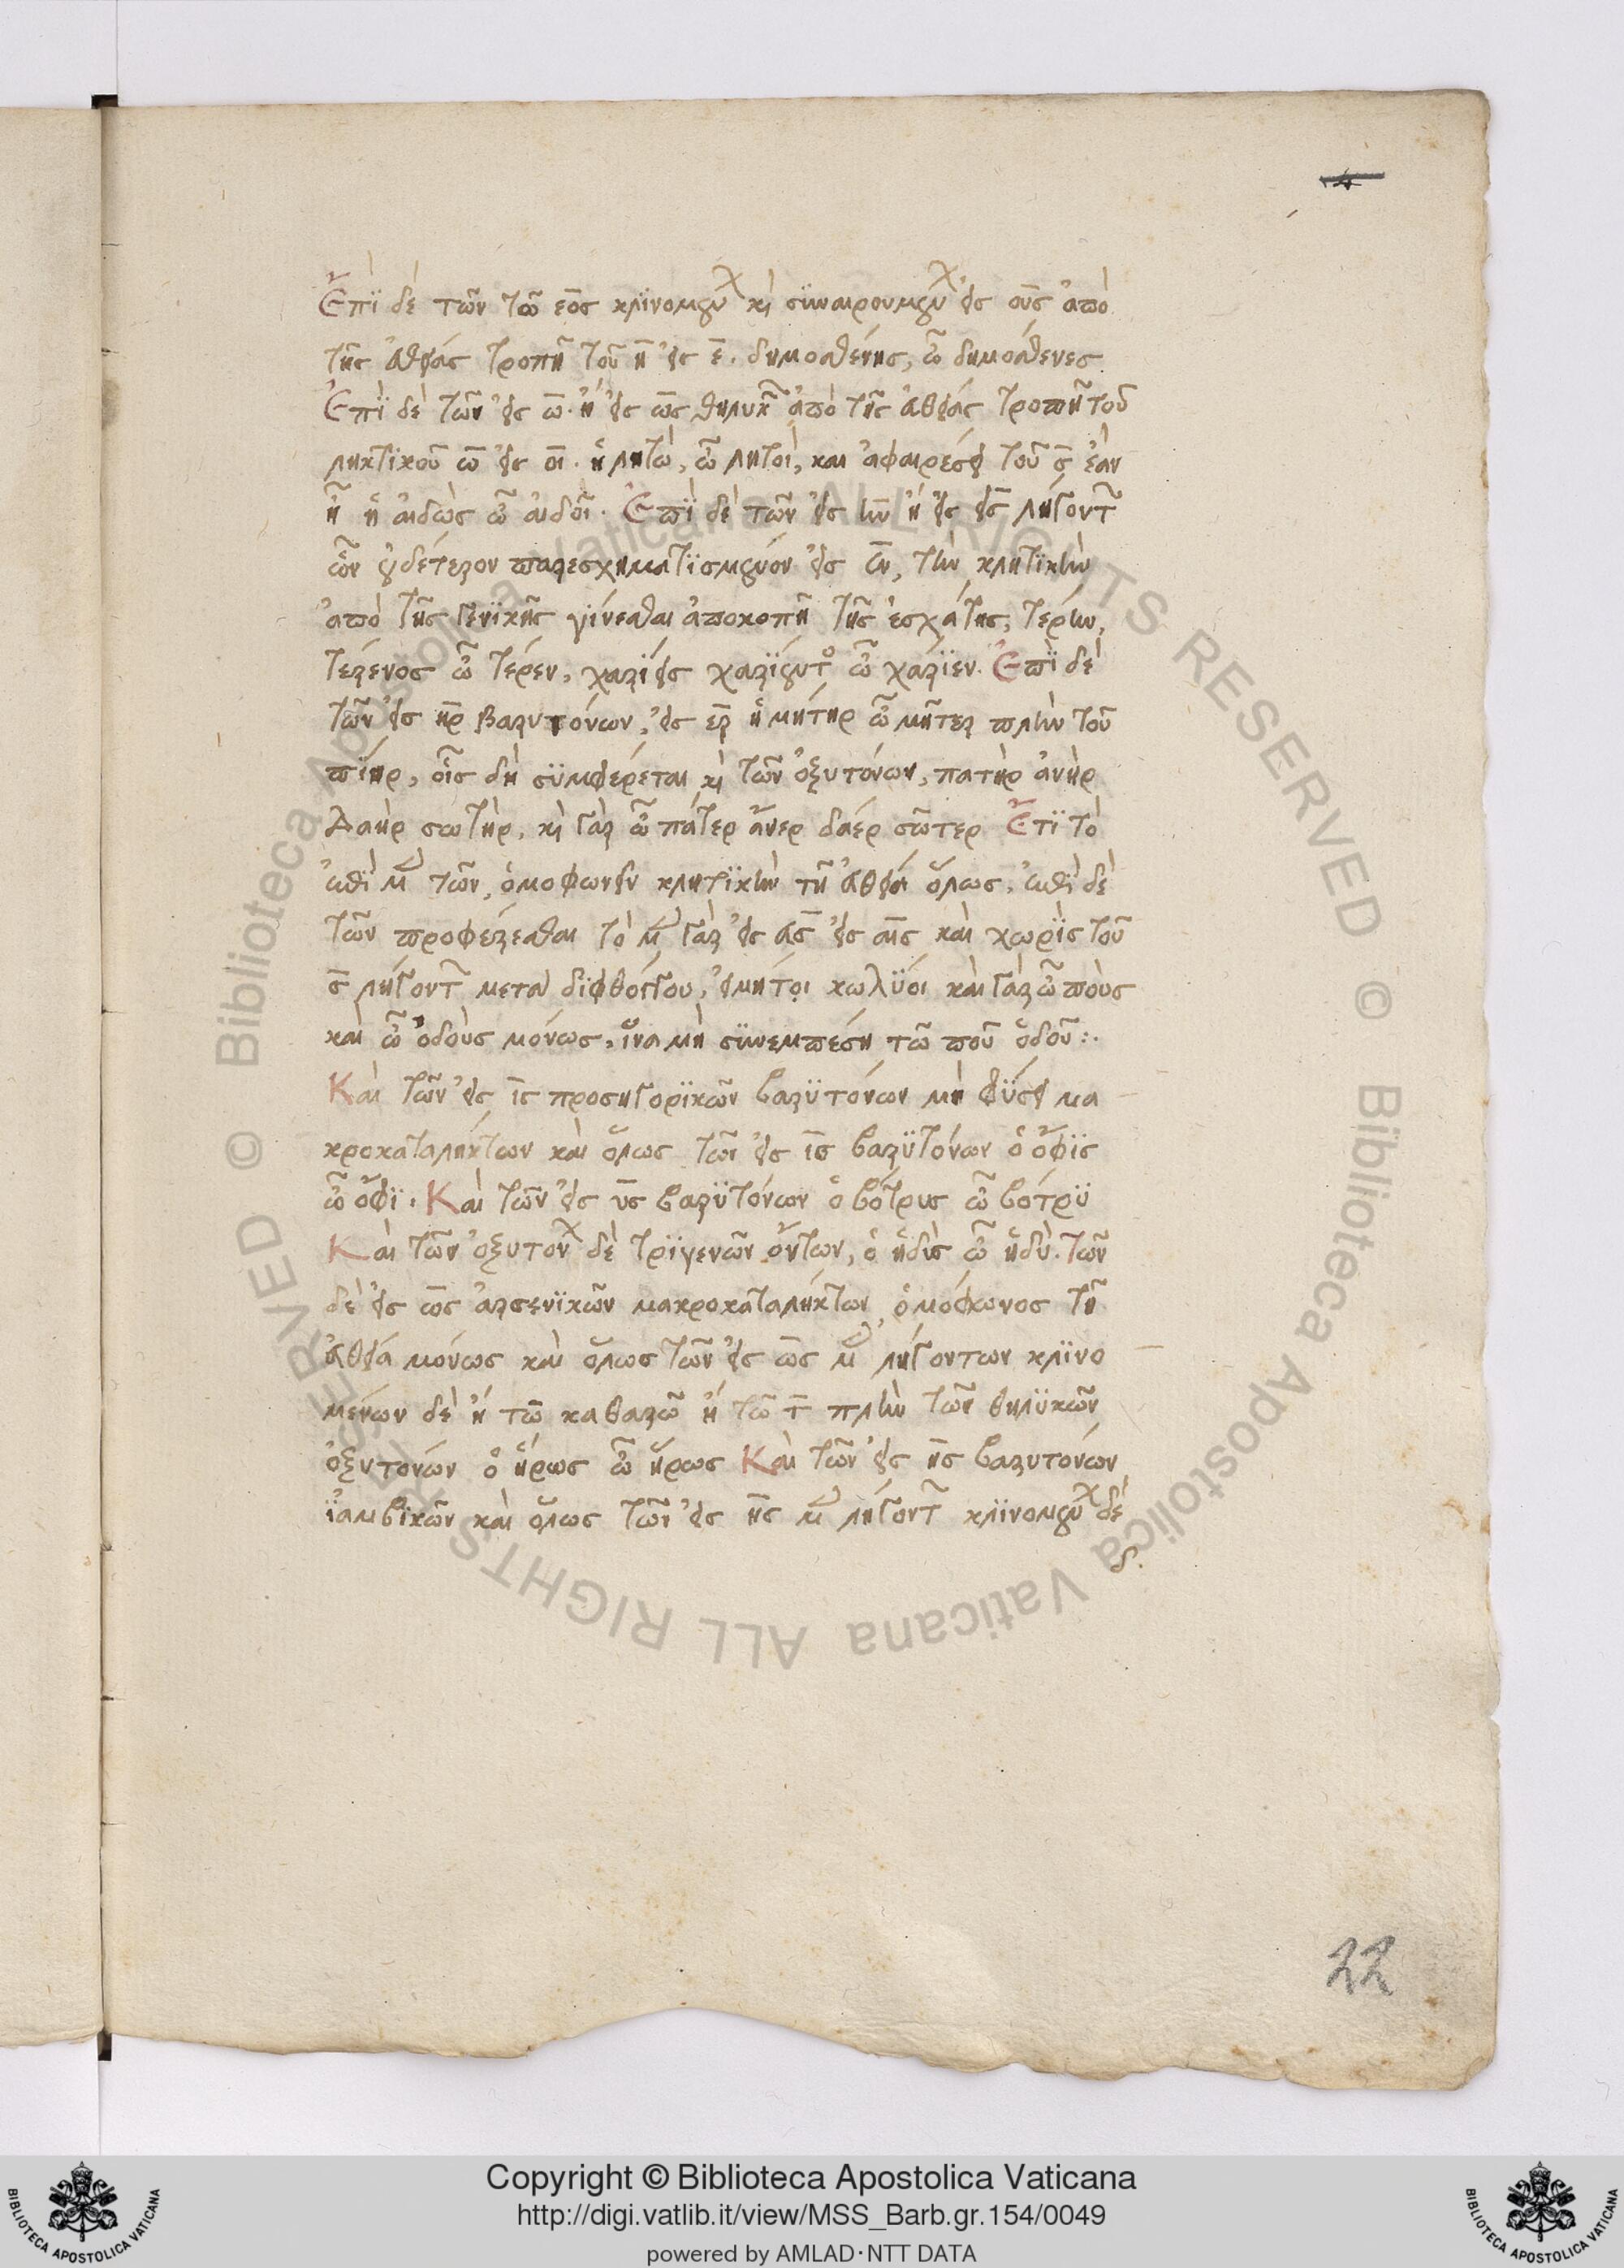 Ἐπὶ δὲ τῶν τῶ εος κλϊνομένων κὶ σϋναιρουμένων εἰς ους ἀπὸ
τῆς εὐθείας τροπῆ τοῦ η εἰς ε. δημοσθένης, ὦ δημόσθενες
Ἐπὶ δὲ τῶν εἰς ω. ἢ εἰς ως θηλυκῶν ἀπὸ τῆς εὐθείας τροπῆ τοῦ
ληκτϊκοῦ ω εἰς οι. ἡ λητὼ, ὦ λητοῖ, και ἀφαιρέσει τοῦ ς ἐὰν
ἦ ἡ αἰδὼς ὦ αἰδοῖ. Ἐπὶ δὲ τῶν εἰς ην ἢ εἰς εις λήγοντ
ὧν οὐδέτερον παρεσχηματϊσμένον εἰς εν, τὴν κλητϊκὴν
ἀπὸ τῆς γενϊκῆς γίνεσθαι ἀποκοπῆ τῆς ἐσχάτης, τέρην,
τέρενος ὦ τέρεν, χαρίεις χαρίεντο ὦ χάρϊεν. Ἐπὶ δὲ
τῶν εἰς ηρ βαρυτόνων, εἰς ερ ἡ μήτηρ ὦ μῆτερ πλὴν τοῦ
πίηρ, οἷς δὴ σϋμφέρεται κὶ τῶν ὀξυτόνων, πατὴρ ἀνὴρ
Δαὴρ σωτὴρ, κὶ γὰρ ὦ πάτερ ἄνερ δαέρ σῶτερ Ἔτϊ τὸ
ἐπὶ μ τῶν, ὁμοφωνεῖν κλητϊκὴν τῆ εὐθεία ὅλως, ἐπὶ δὲ
τῶν προφέρεσθαι τὸ μ γὰρ εἰς ας εἰς αις καὶ χωρὶς τοῦ
ς λήγοντ μετὰ δϊφθόγγου, εἰ μήτοι κωλϋοι καὶ γὰρ ὦ ποὺς
καὶ ὦ ὀδοὺς μόνως, ἵνα μὴ σϋνεμπέση τῶ ποῦ ὁδοῦ :.
Καὶ τῶν εἰς ις προσηγορϊκῶν βαρϋτόνων μὴ φύσει μα
κροκαταλήκτων καὶ ὅλως τῶν εἰς ις βαρϋτόνων ὁ ὄφϊς
ὦ ὄφϊ. Καὶ τῶν εἰς υς βαρϋτόνων ὁ βότρυς ὦ βότρϋ
Καὶ τῶν ὀξυτόνων δὲ τρϊγενῶν ὄντων, ὁ ἡδὺς ὦ ἡδὺ. τῶν
δὲ εἰς ως ἀρσενϊκῶν μακροκαταλήκτων ὁμόφωνος τῆ
εὐθεία μόνως καὶ ὅλως τῶν εἰς ως μ λήγοντων κλϊνο
μένων δὲ ἢ τῶ καθαρῶ ἢ τῶ τ πλὴν τῶν θηλϋκῶν
ὀξυτονῶν ὁ ἥρως ὦ ἥρως Καὶ τῶν εἰς ης βαρυτόνων
ϊαμβϊκῶν καὶ ὅλως τῶν εἰς ης μ λήγοντ κλϊνομένων δὲ
δ.
22
Copyright © Biblioteca Apostolica Vaticana
http://digi.vatlib.it/view/MSS_Barb.gr.154/0049
powered by AMLAD·NTT DATA